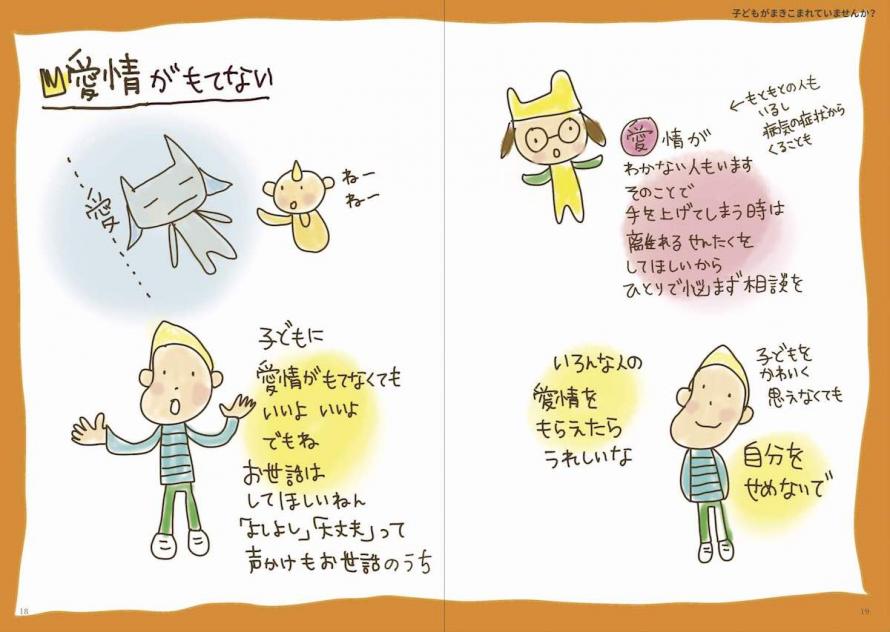 子どもがまきこまれていませんか？
愛情がもてない
愛
ねー
ねー
子どもに
愛情がもてなくても
いいよ いいよ
でもね
お世話は
してほしいねん
「よしよし」「大丈夫」って
声かけもお世話のうち
18
愛情が
わかない人もいます
そのことで
手を上げてしまう時は
離れるせんたくを
してほしいから
ひとりで悩まず相談を
←もともとの人も
いるし
病気の症状から
くることも
いろんな人の
愛情を
もらえたら
うれしいな
子どもを
かわいく
思えなくても
自分を
せめないで
19